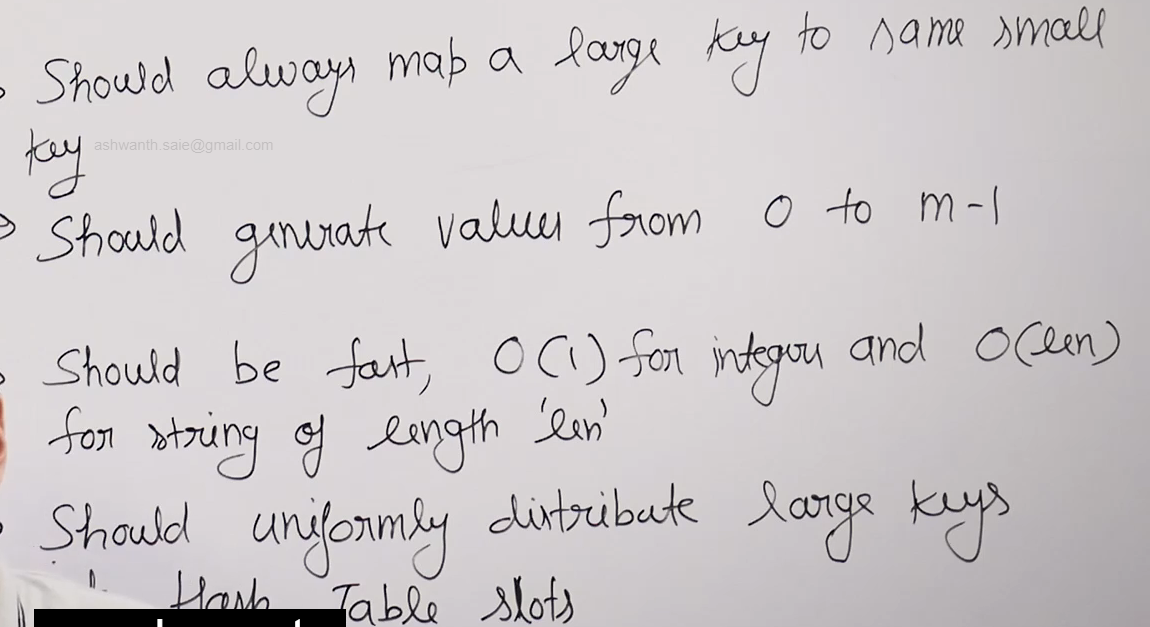 Should always map a large key to same small
key ashwanth.saie@gmail.com
Should generate values from 0 to m-1
Should be fast, O(1) for integers and O(len)
for string of length 'len'
Should uniformly distribute large keys
Hash Table slots